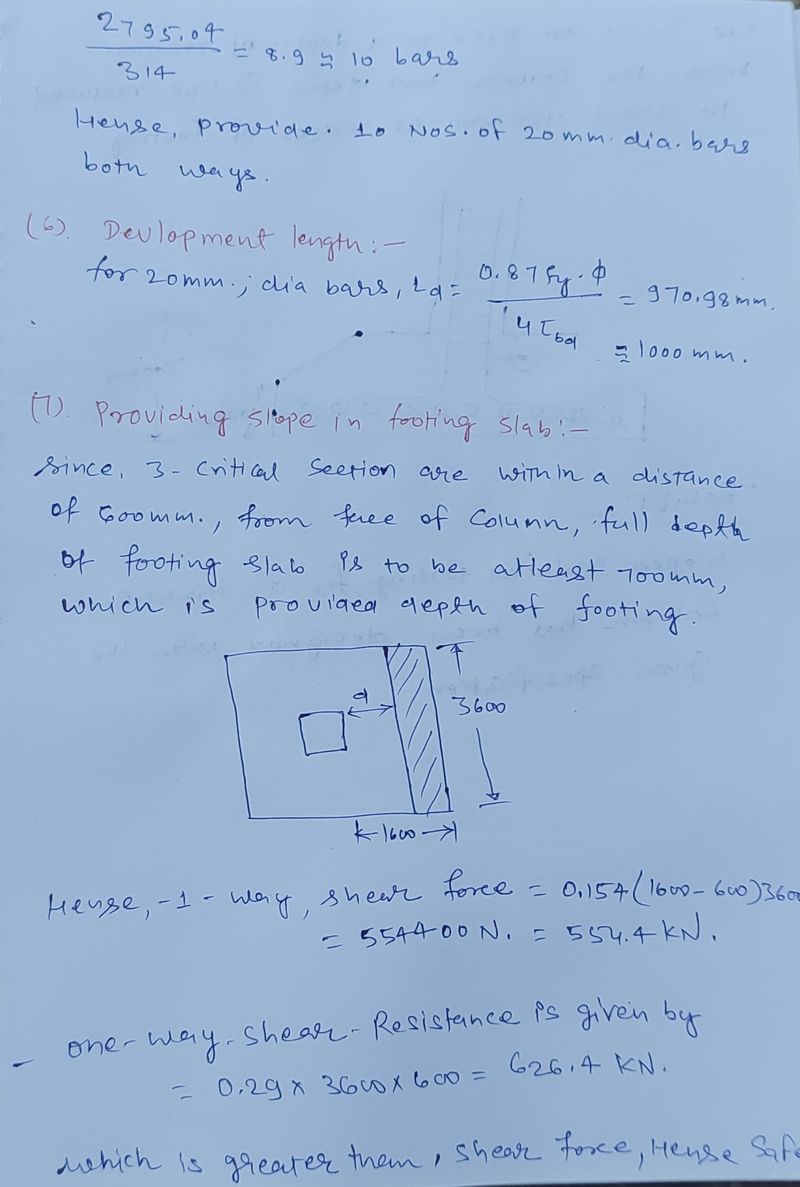 2795.04 / 314 = 8.9 ≈ 10 bars
Hense, provide. 10 Nos. of 20 mm. dia. bars
both ways.
(6). Devlopment length:-
for 20mm.; dia bars, Ld = 0.87 fy. ϕ / 4 τbd = 970.98 mm.
≅ 1000 mm.
(7). Providing slope in footing slab:-
Since, 3- Critical Section are within a distance
of 600mm., from face of Column, full depth
of footing slab is to be atleast 700mm,
which is provided depth of footing.
d
3600
1600
Hense, -1- way, shear force = 0.154 (1600 - 600) 3600
= 554400 N. = 554.4 KN.
- one-way-shear-Resistance is given by
= 0.29 x 3600 x 600 = 626.4 KN.
which is greater them, shear force, Hense Safe